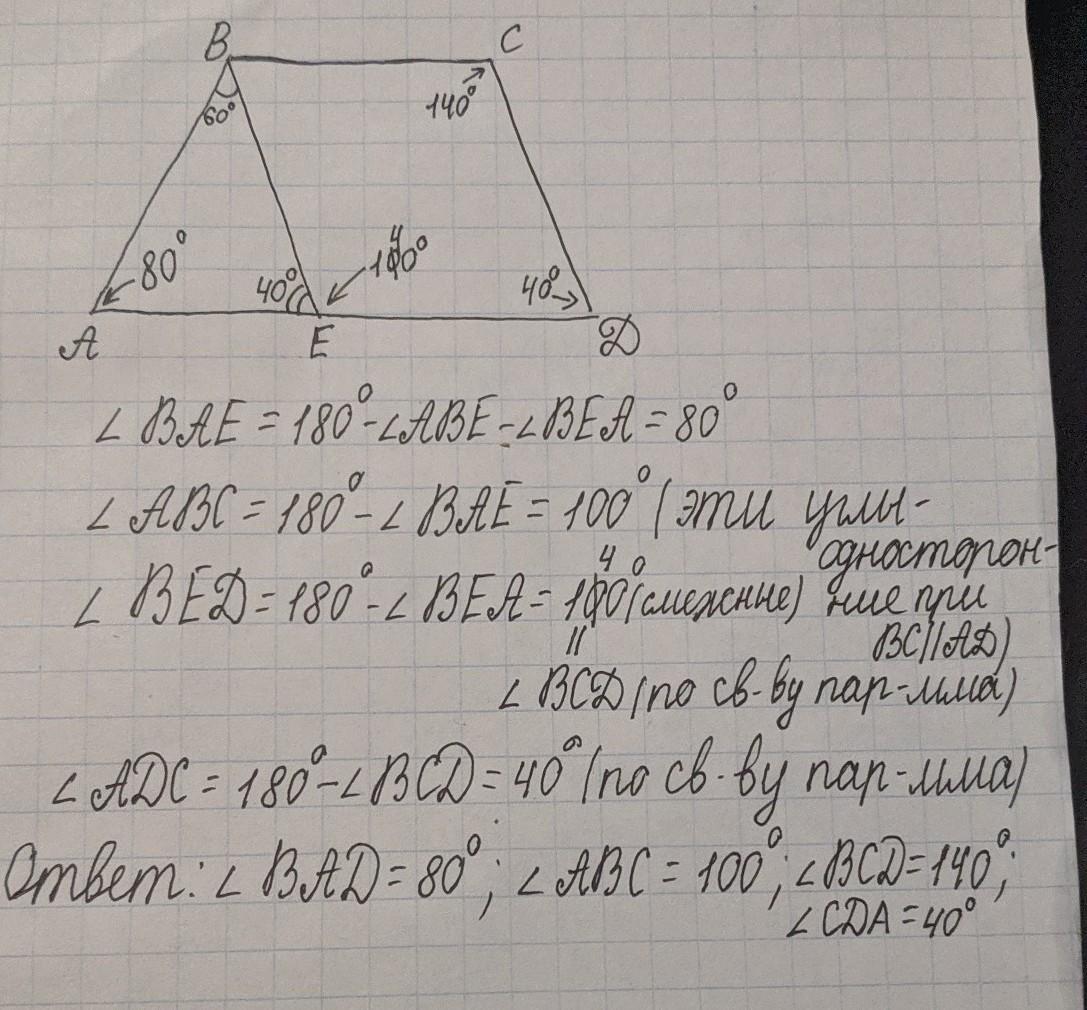 B C
60° 140°
80° 40° 140° 40°
A E D
∠ BAE = 180° - ∠ABE - ∠BEA = 80°
∠ ABC = 180° - ∠ BAE = 100° (эти углы-
односторон-
∠ BED = 180° - ∠ BEA = 140° (смежные) ние при
BC||AD)
||
∠ BCD (по св-ву пар-мма)
∠ ADC = 180° - ∠ BCD = 40° (по св-ву пар-мма)
Ответ: ∠ BAD = 80°; ∠ ABC = 100°; ∠ BCD = 140°;
∠ CDA = 40°